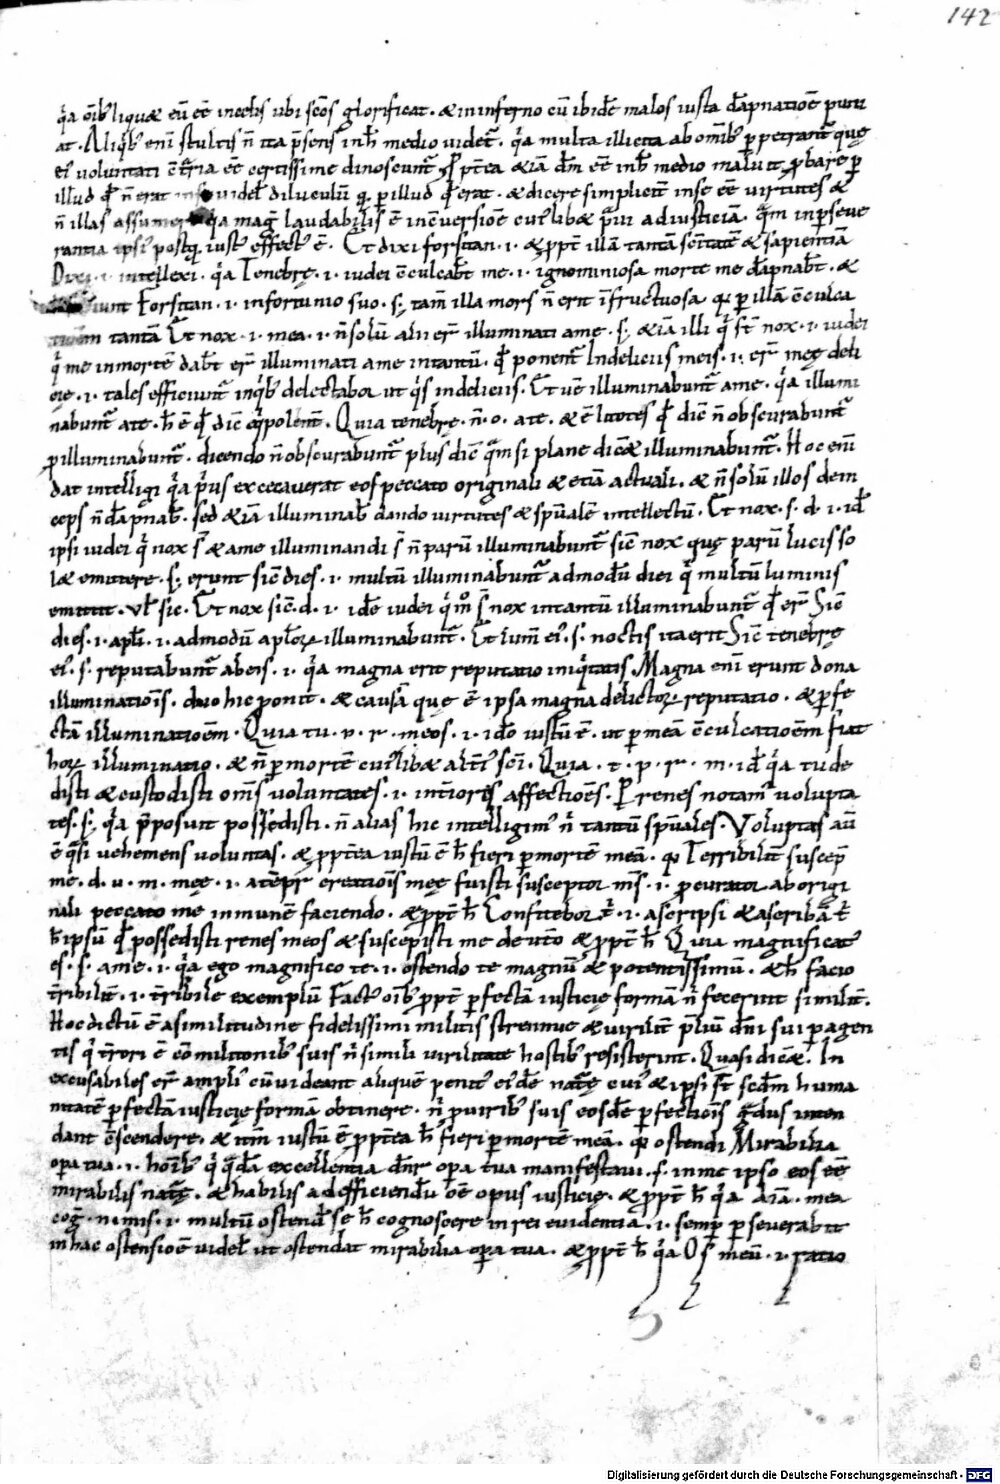 142
q̃a oĩb' liquæ eũ eẽ in eclis ubi sc̃os glorificat. & in inferno eũ ibidẽ malos iusta dãpnatioẽ puni
at. Aliq̃b' eni stultis ñ ita p̃sens in h̃ medio uidet̃. q̃a multa illicita ab omĩb' ppetrant̃ quę
ei' uoluntati ẽtr̃ria eẽ certissime dinoscunt̃
illud qđ ñ erat uideł diluculũ q. p illud qđ erat. & dicere simplicit̃ in se eẽ uirtutes &
ñ illas assumere q̃a mag̃ laudabilis ẽ in ẽuersioẽ cui'libæ p̃ui ad iusticiã. q̃m in pseue
rantia ipsi' postq̃ iust' effect' ẽ. Et dixi forsitan .i. & ppt̃ illã tantã sc̃itatẽ & sapientiã
Dixi .i. intellexi. q̃a Tenebrę .i. iudei ẽculcab̃t me .i. ignominiosa morte me dãpnab̃t. &
Forsitan .i. infortunio suo. s; tam̃ illa mors ñ erit ĩfructuosa q. p illã ẽculca
tioẽm tantã Et nox .i. mea .i. ñ solũ alii er̃ illuminati a me. s; & iã illi q̃ st̃ nox .i. iudei
q̃ me in mortẽ dab̃t er̃ illuminati a me in tantũ. qđ ponent̃ In deliciis meis .i. er̃ męę deli
cię .i. tales efficiunt̃ in q̃b' delectabor ut q̃s in deliciis. Et uẽ illuminabunt̃ a me. q̃a illumi
nabunt̃ a te. h̃ ẽ qđ dic̃ eq̃polent̃. Quia tenebrę .ñ.o. a te. & ẽ litotes qđ dic̃ ñ obscurabunt̃
p illuminabunt̃. dicendo ñ obscurabunt̃ plus dic̃ q̃m si plane dicæ illuminabunt̃. Hoc eni
dat intelligi q̃a p̃us excecauerat eos peccato originali & etiã actuali. & ñ solũ illos dein
ceps ñ dãpnab̃. sed & iã illuminab̃ dando uirtutes & sp̃ualẽ intellectũ. Et nox .s.d.i. iđ
ipsi iudei q̃ nox s̃ & a me illuminandi s̃ ñ parũ illuminabunt̃ sic̃ nox quę parũ lucis so
læ emittere. s; erunt sic̃ dies .i. multũ illuminabunt̃ admodũ diei q̃ multũ luminis
emittit. uł sic. Et nox sic̃.d.i. idẽ iudei q̃ m̊ s̃ nox in tantũ illuminabunt̃ qđ er̃ Sic̃
dies .i. apłi .i. admodũ apłoꝝ illuminabunt̃. Et lum̃ ei' .s. noctis ita erit Sic̃ tenebrę
ei' .s. reputabunt̃ ab eis .i. q̃a magna erit reputatio iniq̃tatis Magna eni erunt dona
illuminatiõis. duo hic ponit. & causã quę ẽ ipsa magna delictoꝝ reputatio. & pfe
ctã illuminatioẽm. Quia tu .p.r. meos .i. idõ iustũ ẽ. ut p meã ẽculcatioẽm fiat
hoꝝ illuminatio. & ñ p mortẽ cui'libæ alt̃i' sc̃i. Quia .t.p.r.m. iđ q̃a tu de
disti & custodisti om̃s uoluntates .i. int̃iores affectioẽs. P renes notam' uolupta
tes. s; q̃a p̃posuit possedisti. ñ alias hic intelligim' ñ tantũ sp̃uales. Voluptas aũ
ẽ q̃si uehemens uoluntas. & ppt̃ea iustũ ẽ h̃ fieri p mortẽ meã. q. Terribilit̃ suscep̃
me .d.u.m. męę .i. a tẽpr̃ creatiõis męę fuisti susceptor m̃s .i. pcurator ab origi
nali peccato me inmunẽ faciendo. & ppt̃ h̃ Confitebor t̃ .i. ascripsi & ascribã t̃
h̃ ipsũ qđ possedisti renes meos & suscepisti me de utõ & ppt̃ h̃ Quia magnificat'
es .s. a me .i. q̃a ego magnifico te .i. ostendo te magnũ & potentissimũ. & h̃ facio
t̃ribilit̃ .i. t̃ribile exemplũ Fact' oĩb' ppt̃ pfectã iusticię formã ñ fecerint similit̃.
Hoc dictũ ẽ a similitudine fidelissimi militis strennue & uirilit̃ p̃liũ dñi sui pagen
tis q̃ t̃rori ẽ cõmilitonib' suis ñ simili uirilitate hostib' resisterint. Quasi dicæ. In
excusabiles er̃ ampli' cũ uideant aliquẽ penit' ei'dẽ naturę cui' & ipsi st̃ scđm huma
nitatẽ pfectã iusticię formã obtinere. ñ p uirib' suis eosdẽ pfectiõis g̃dus inten
dant ẽscendere. & itm̃ iustũ ẽ ppt̃ea h̃ fieri p mortẽ meã. q. ostendi Mirabilia
opa tua .i. hoĩb' q̃ q̃dã excellentia dñr opa tua manifestaui .s. in me ipso eos eẽ
mirabilis naturę. & habilis ad efficiendũ õe opus iusticię. & ppt̃ h̃ q̃a aĩa. mea
cog̃. nimis .i. multũ ostendit se h̃ cognoscere in rei euidentia .i. semp pseuerabit
in hac ostensioẽ uideł ut ostendat mirabilia opa tua. & ppt̃ h̃ q̃a Os meũ .i. ratio
Digitalisierung gefördert durch die Deutsche Forschungsgemeinschaft - DFG